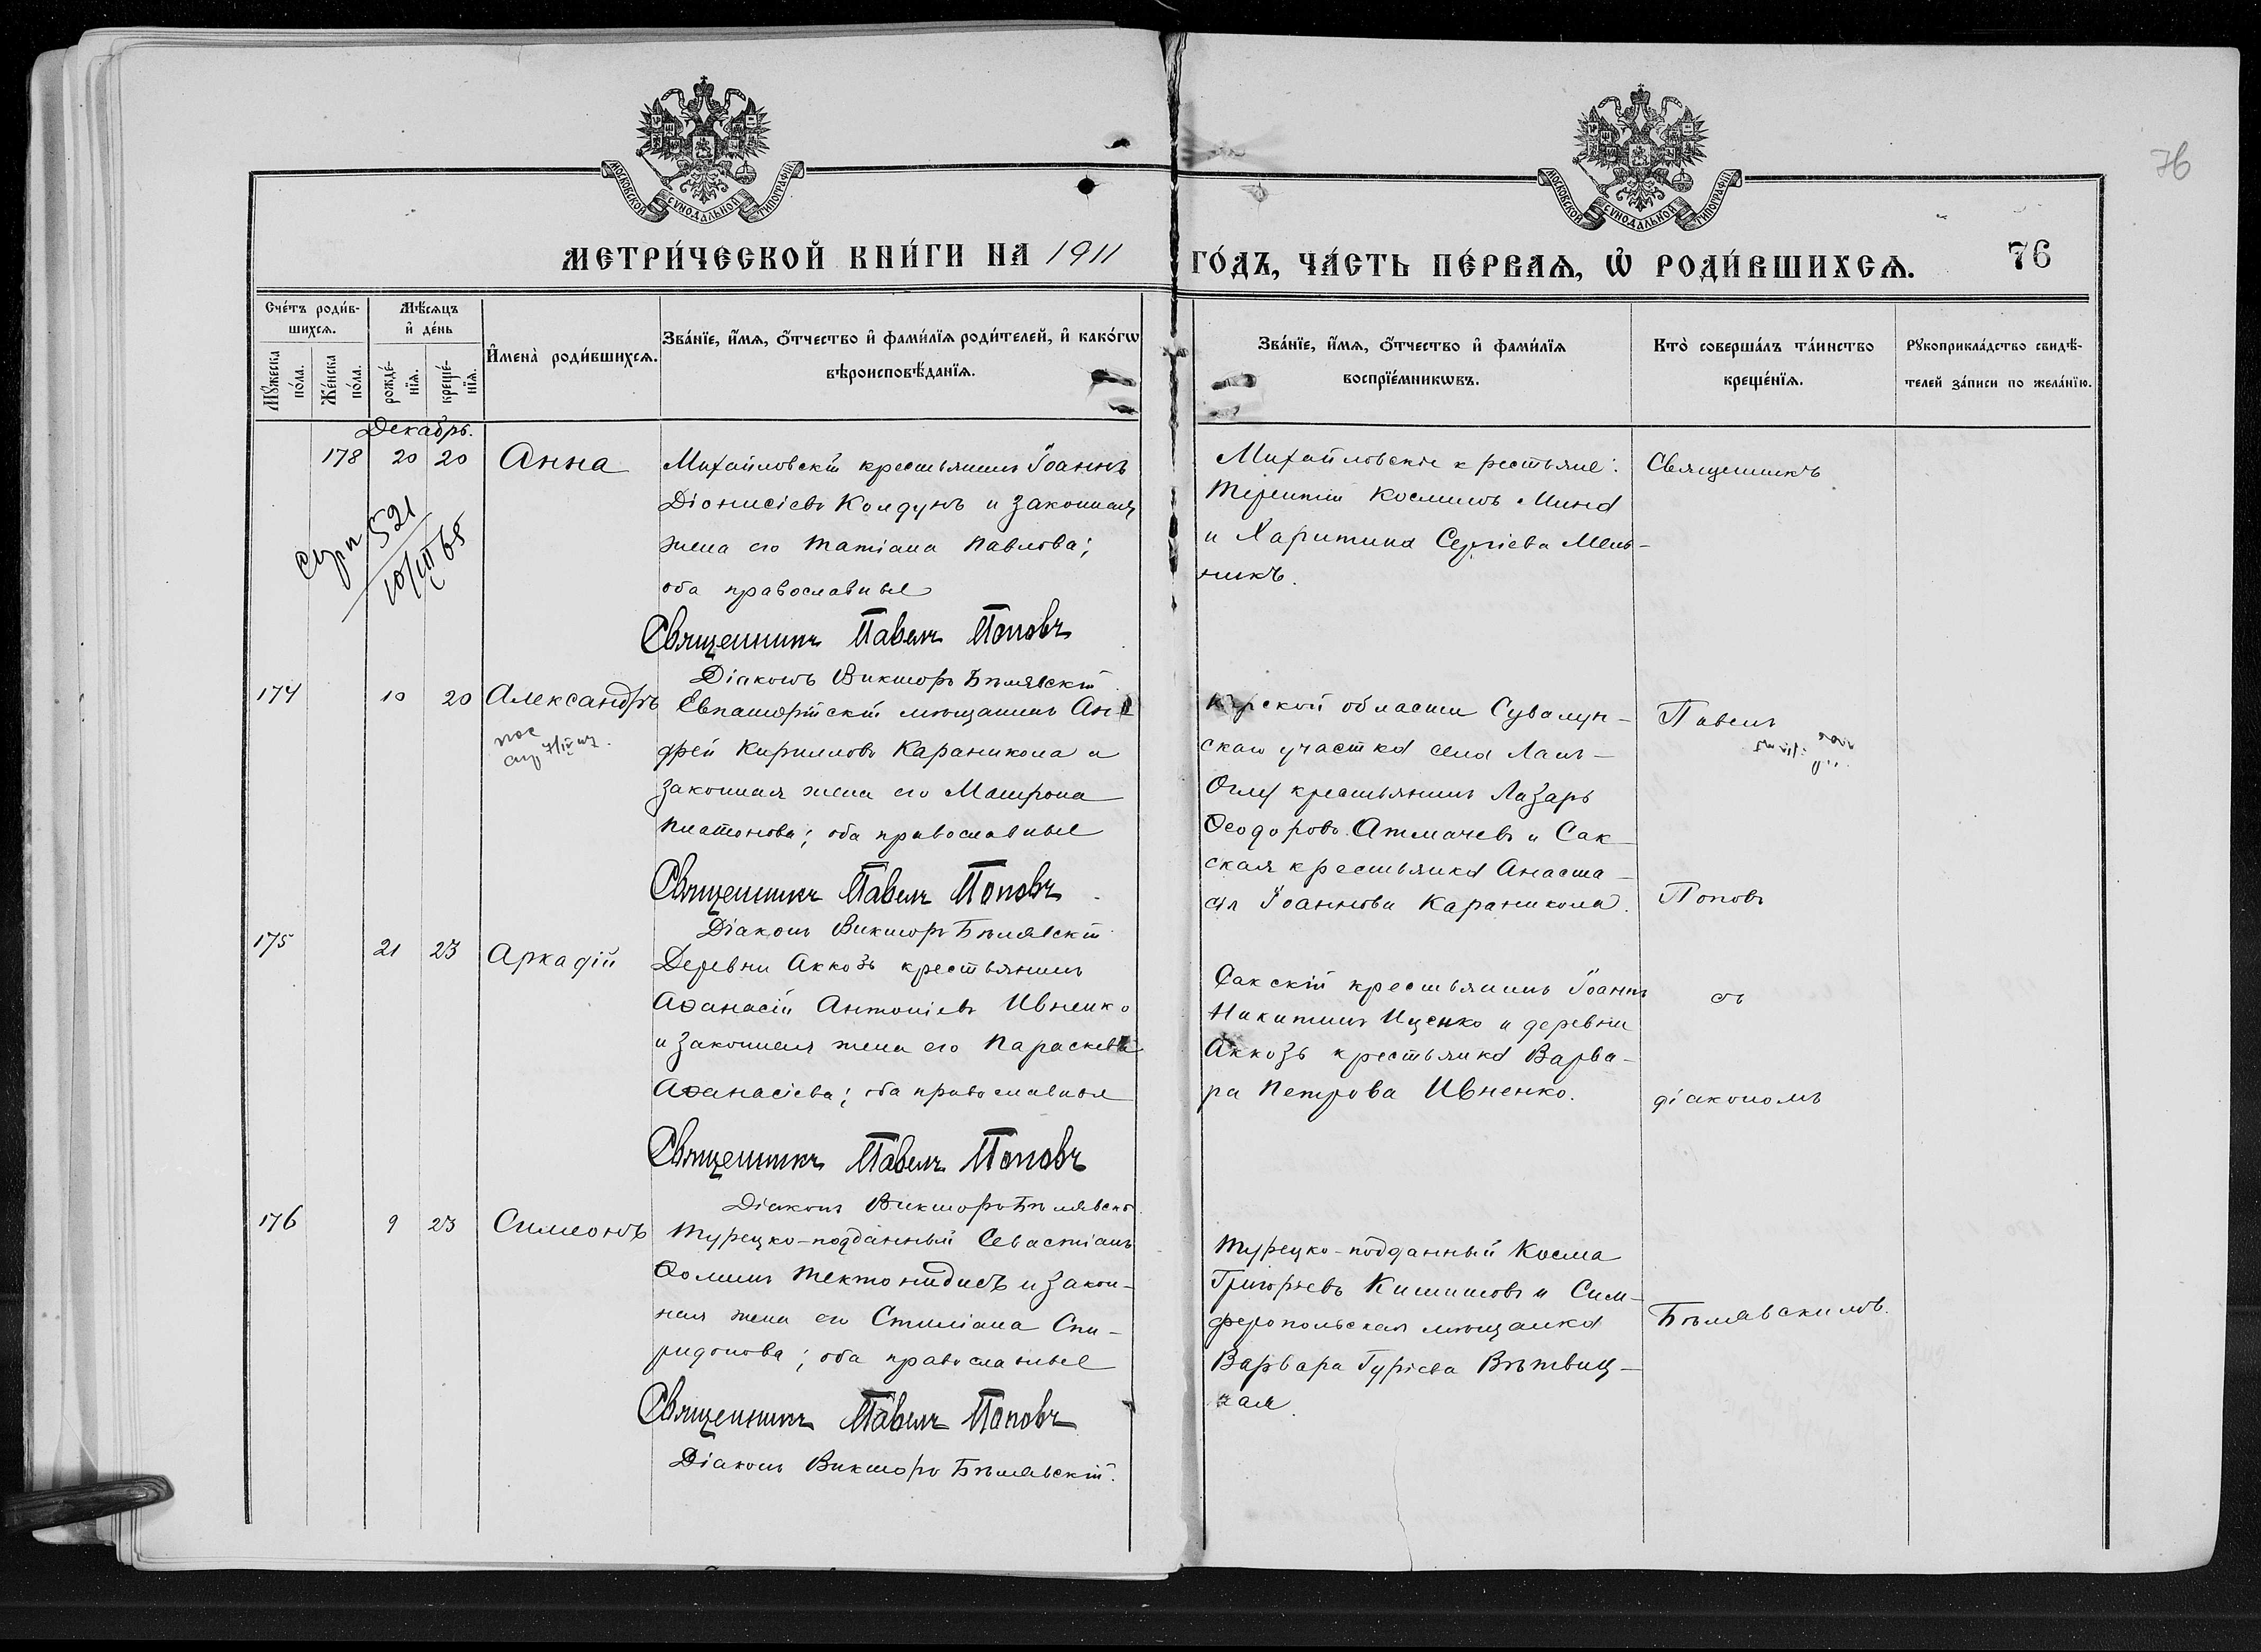 76
МОСКОВСКОЙ СУНОДАЛЬНОЙ ТИПОГРАФІИ
МОСКОВСКОЙ СУНОДАЛЬНОЙ ТИПОГРАФІИ
МЕТРИ́ЧЕСКОЙ КНИ́ГИ НА 1911
ГО́ДЪ, ЧА́СТЬ ПЕ́РВАѦ, Ѡ҆ РОДИ́ВШИХСѦ. 76
Сче́тъ роди́в-
шихсѧ.
Мꙋ́жеска по́ла.
Же́нска по́ла.
Мѣ́сѧцъ
и҆ де́нь
рожде́-нїѧ.
креще́-нїѧ.
И҆мена̀ роди́вшихсѧ.
Зва́нїе, и҆́мѧ, ѻ҆́тчество и҆ фами́лїѧ роди́телей, и҆ како́гѡ
вѣроисповѣ́данїѧ.
Зва́нїе, и҆́мѧ, ѻ҆́тчество и҆ фами́лїѧ
воспрїе́мникѡвъ.
Кто̀ соверша́лъ та́инство
креще́нїѧ.
Рꙋкоприкла́дство свидѣ́-
телей за́писи по жела́нїю.
Декабрь.
178 20 20 Анна
Михайловскій крестьянинъ Іоаннъ
Діонисіевъ Колдунъ и законная
жена его Татіана Павлова;
оба православные
Священникъ Павелъ Поповъ
Діаконъ Викторъ Бѣлявскій
Михайловскіе крестьяне:
Терентій Косминъ Мина
и Харитина Сергіева Мель-
никъ.
Священникъ
521
10/III 65
174 10 20 Александръ
Евпаторійскій мѣщанинъ Ан-
дрей Кирилловъ Караникола и
законная жена его Матрона
Платонова; оба православные
Священникъ Павелъ Поповъ
Діаконъ Викторъ Бѣлявскій
Карской области Сувалун-
скаго участка села Лаль-
Оглу крестьянинъ Лазарь
Ѳеодоровъ Атмачевъ и Сак-
ская крестьянка Анаста-
сія Іоаннова Караникола.
Павелъ
Поповъ
175 21 23 Аркадій
Деревни Аккозъ крестьянинъ
Аѳанасій Антоніевъ Ивненко
и законная жена его Параскева
Аѳанасіева; оба православные
Священникъ Павелъ Поповъ
Діаконъ Викторъ Бѣлявскій
Сакскій крестьянинъ Іоаннъ
Никитинъ Иценко и деревни
Аккозъ крестьянка Варва-
ра Петрова Ивненко.
съ
діакономъ
176 9 23 Симеонъ
Турецко-подданный Севастіанъ
Ѳоминъ Тектонидисъ и закон-
ная жена его Стиліана Спи-
ридонова; оба православные
Священникъ Павелъ Поповъ
Діаконъ Викторъ Бѣлявскій.
Турецко-подданный Косма
Григорьевъ Кишишовъ и Сим-
феропольская мѣщанка
Варвара Гуріева Вѣтвиц-
кая.
Бѣлявскимъ.